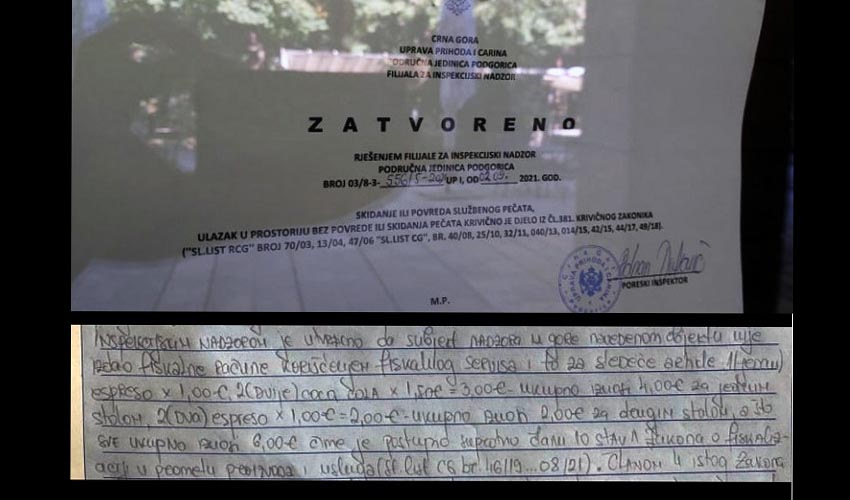 CRNA GORA
UPRAVA PRIHODA I CARINA
PODRUČNA JEDINICA PODGORICA
FILIJALA ZA INSPEKCIJSKI NADZOR
ZATVORENO
RJEŠENJEM FILIJALE ZA INSPEKCIJSKI NADZOR
PODRUČNA JEDINICA PODGORICA
BROJ 03/8-3- UP I, OD 02.09. 2021. GOD.
SKIDANJE ILI POVREDA SLUŽBENOG PEČATA,
ULAZAK U PROSTORIJU BEZ POVREDE ILI SKIDANJA PEČATA KRIVIČNO JE DJELO IZ ČL.381. KRIVIČNOG ZAKONIKA
("SL.LIST RCG" BROJ 70/03, 13/04, 47/06 "SL.LIST CG", BR. 40/08, 25/10, 32/11, 040/13, 014/15, 42/15, 44/17, 49/18).
PORESKI INSPEKTOR
M.P.
INSPEKCIJSKIM NADZOROM je utvrđeno da subjekt NADZORA u gore navedenom objektu nije
izdao fiskalne račune korišćenjem fiskalnog servisa i to za sledeće artikle 1(jedan)
espreso × 1,00€, 2(DVIJE) coca cola × 1,50€ = 3,00€ - ukupno iznosi 4,00€ za jednim
stolom, 2(DVA) espreso × 1,00€ = 2,00€ - ukupno iznosi 2,00€ za drugim stolom, a što
SVE ukupno iznosi 6,00€ čime je postupio suprotno članu 10 stav 1 Zakona o fiskaliza-
ciji u prometu proizvoda i usluga (Sl. list CG br. 46/19...08/21). ČLANOM 4 istog Zakona